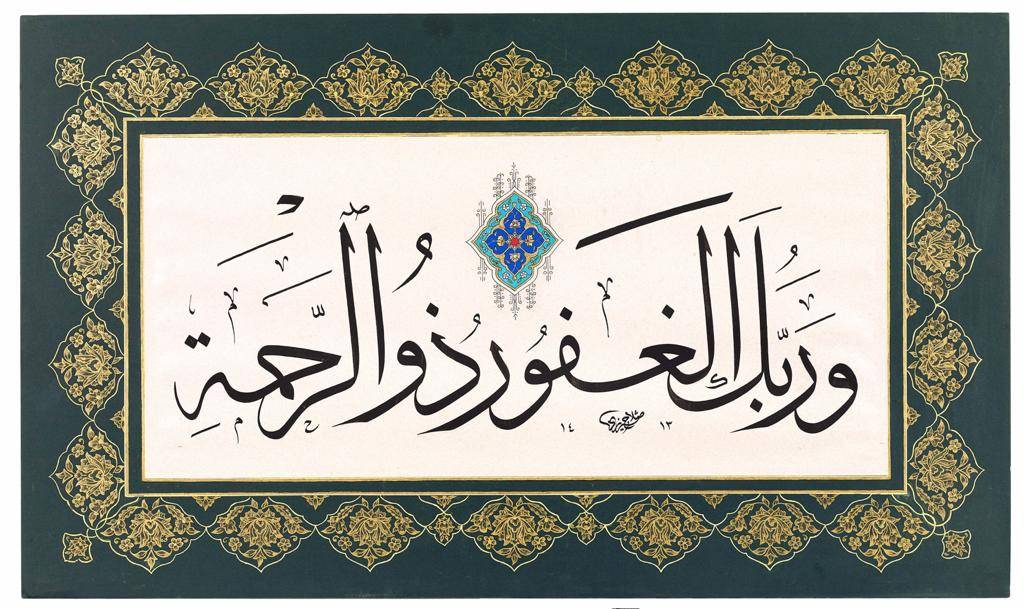 وَرَبُّكَ الْغَفُورُ ذُو الرَّحْمَةِ
١٤ ١٣